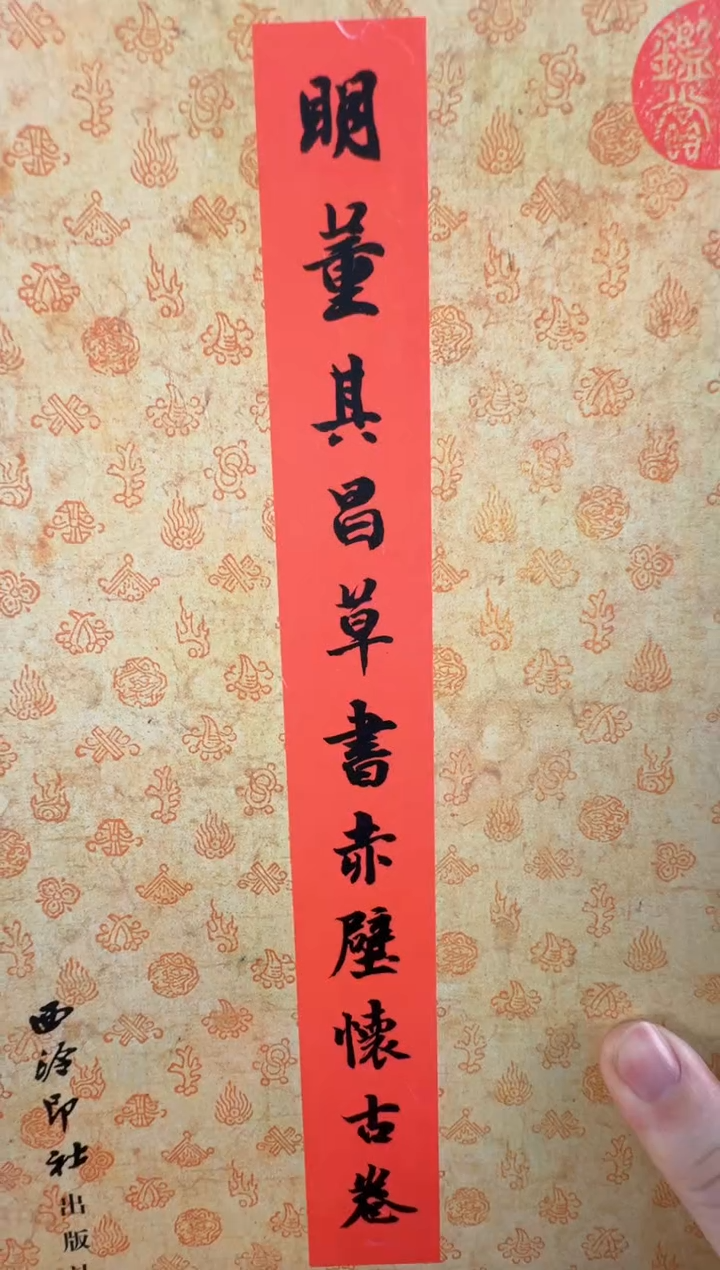 明董其昌草書赤壁懷古卷
西泠印社出版社